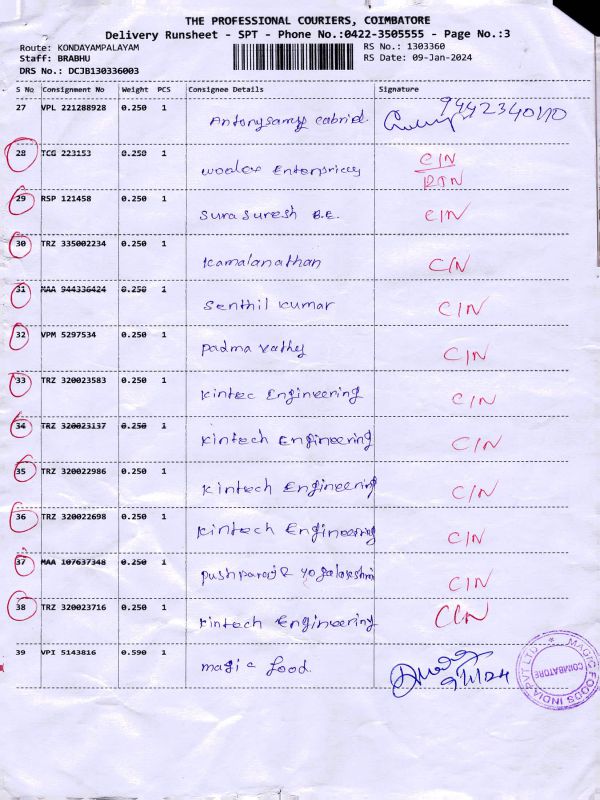 THE PROFESSIONAL COURIERS, COIMBATORE
Delivery Runsheet - SPT - Phone No.:0422-3505555 - Page No.:3
Route: KONDAYAMPALAYAM RS No.: 1303360
Staff: BRABHU RS Date: 09-Jan-2024
DRS No.: DCJB130336003
S No Consignment No Weight PCS Consignee Details Signature
27 VPL 221288928 0.250 1
Antonysamy Cabriel
28 TCG 223153 0.250 1 C/N
Enterprices RTN
29 RSP 121458 0.250 1
Sura Suresh B.E. C/N
30 TRZ 335002234 0.250 1
Kamalanathan C/N
31 MAA 944336424 0.250 1
Senthil Kumar C/N
32 VPM 5297534 0.250 1
Padma Vathy C/N
33 TRZ 320023583 0.250 1
Kintec Engineering C/N
34 TRZ 320023137 0.250 1
Kintech Engineering C/N
35 TRZ 320022986 0.250 1
Kintech Engineering C/N
36 TRZ 320022698 0.250 1
Kintech Engineering C/N
37 MAA 107637348 0.250 1
Pushparaj & Yogalakshmi C/N
38 TRZ 320023716 0.250 1
Kintech Engineering C/N
39 VPI 5143816 0.590 1
Magic food 9/1/24
MAGIC FOODS INDIA PVT LTD
COIMBATORE